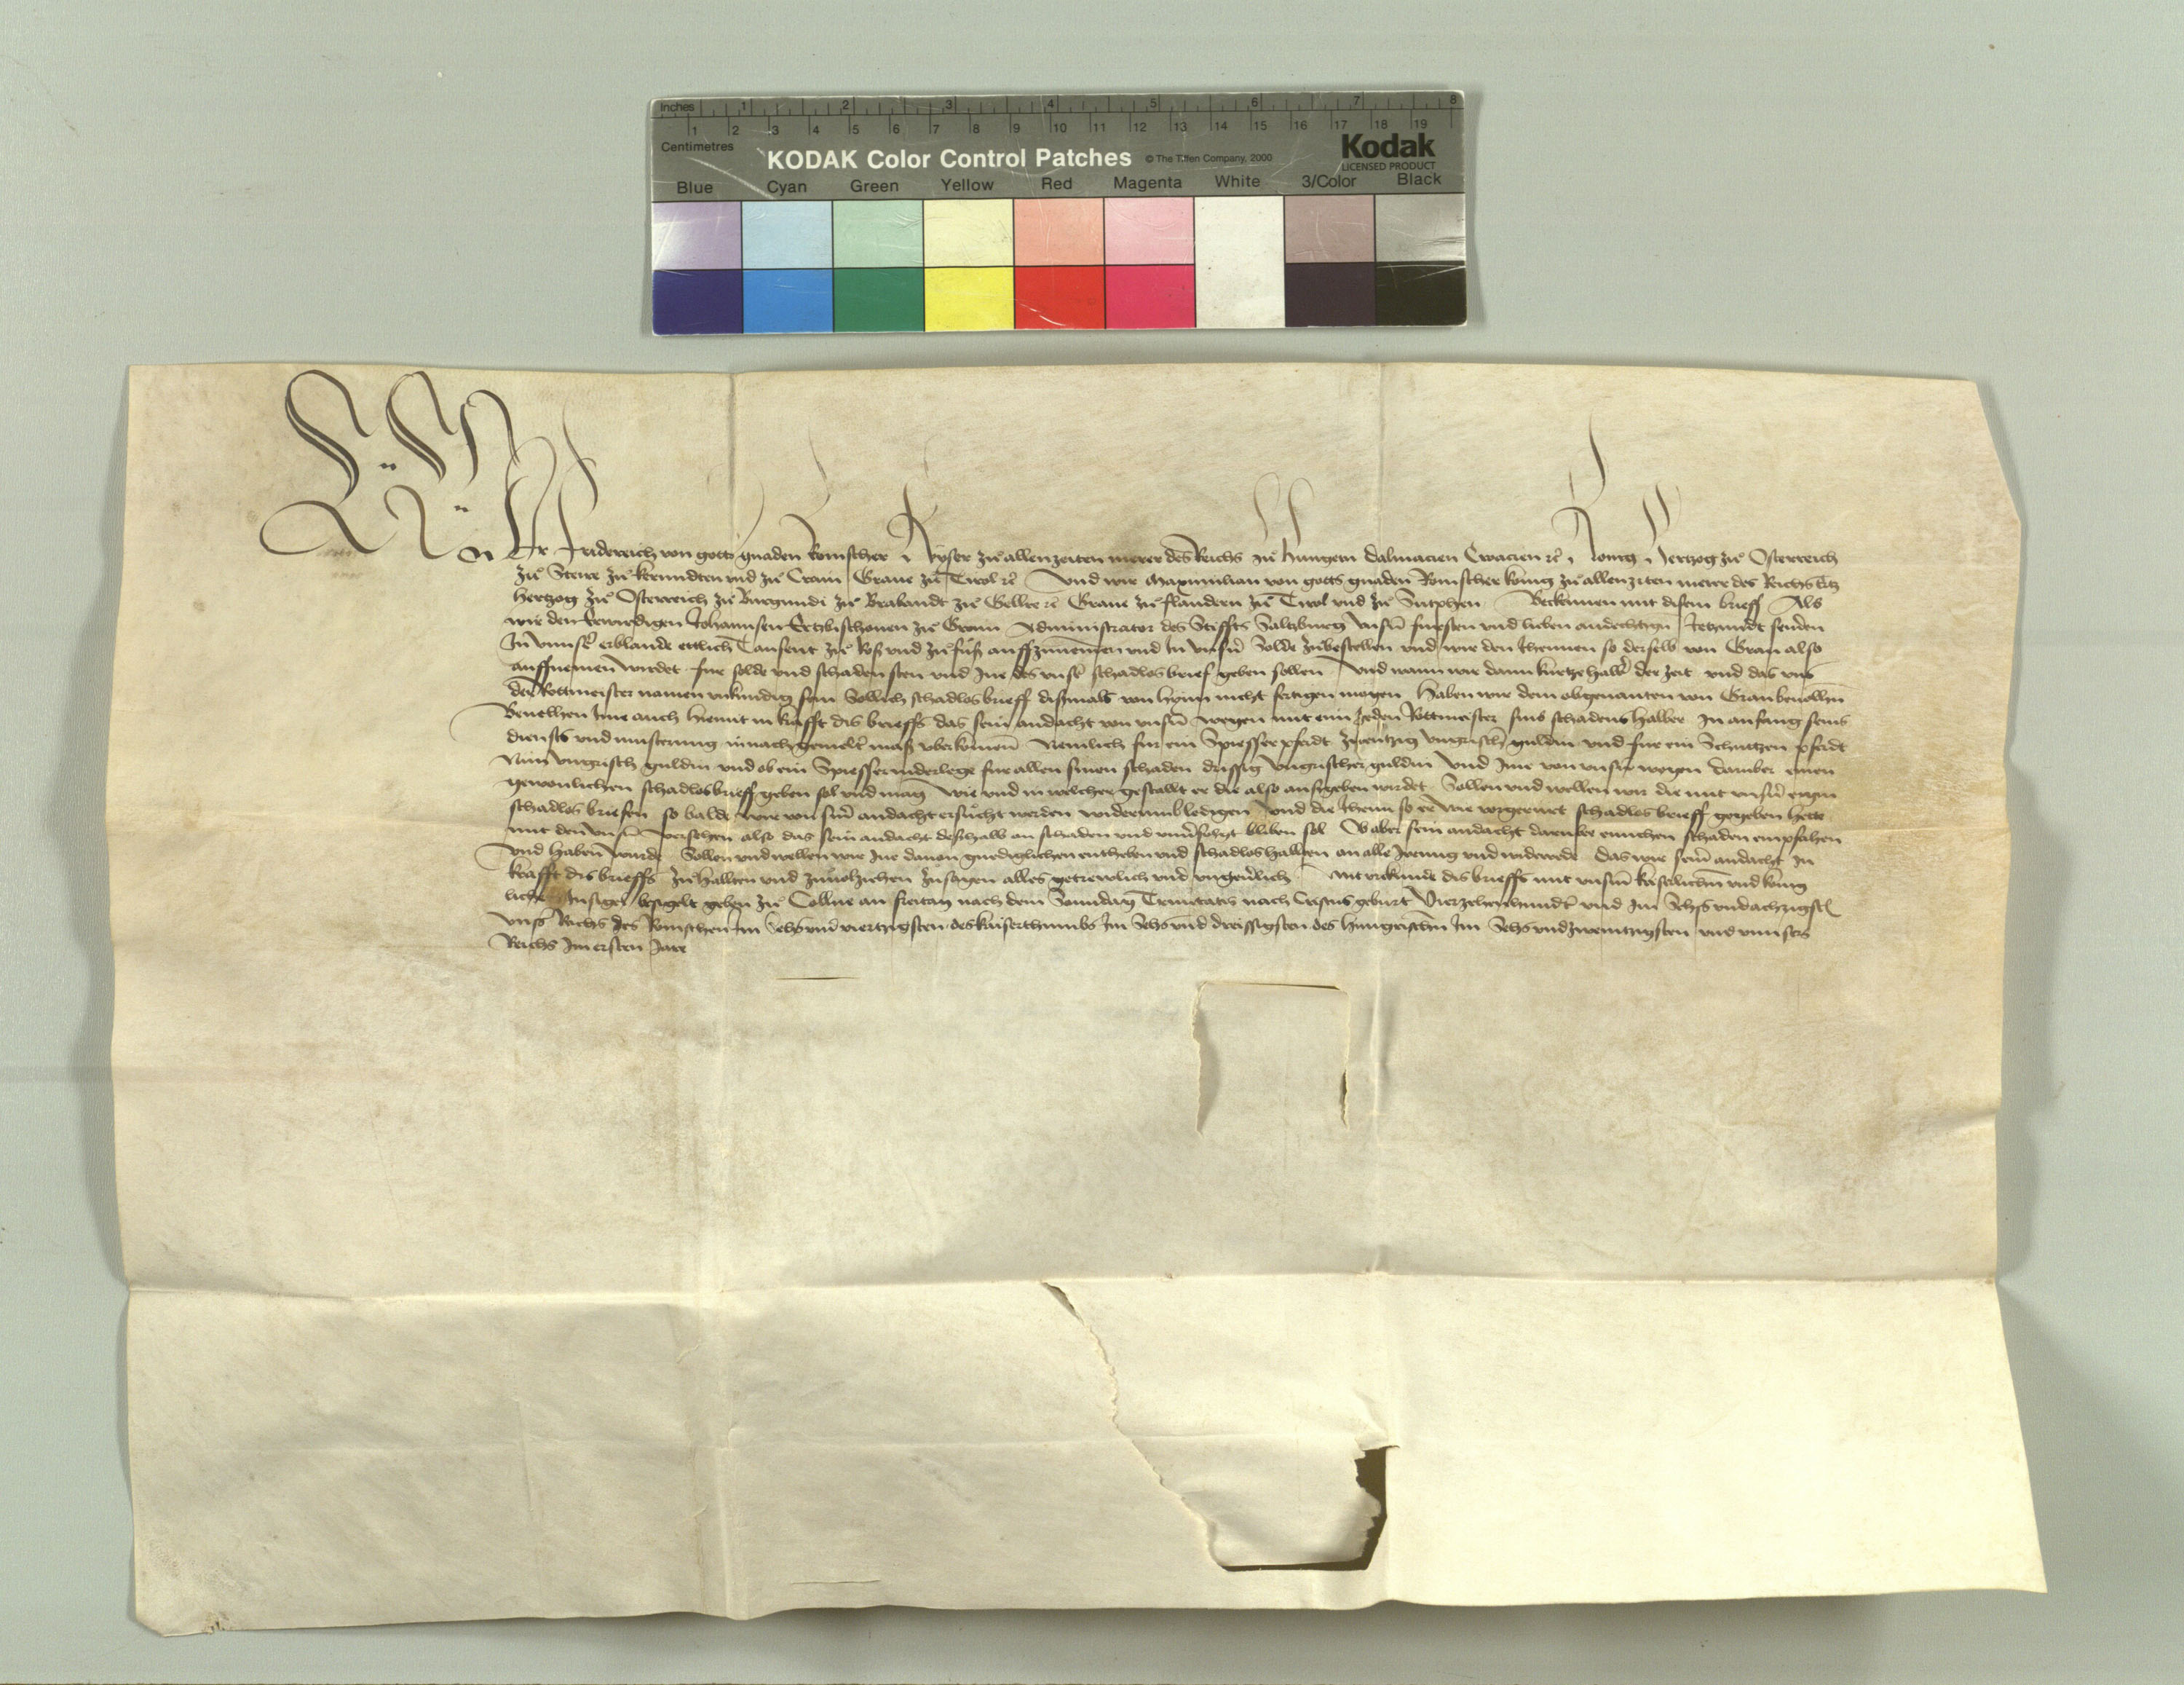 Inches 1 2 3 4 5 6 7 8
1 2 3 4 5 6 7 8 9 10 11 12 13 14 15 16 17 18 19
Centimetres
KODAK Color Control Patches © The Tiffen Company, 2000
Kodak
LICENSED PRODUCT
Blue Cyan Green Yellow Red Magenta White 3/Color Black
Wir Friderich von gotts gnaden Romscher Kayser zu allenzeiten merer des Reichs zu Hungern Dalmacien Croacien ꝛc Konig Hertzog zu Osterreich
zu Steur zu kernndten vnd zu Crain Graue zu Tirol ꝛc Vnd wir Maximilian von gotts gnaden Romscher konig zu allenziten merer des Richs Ertz
hertzog zu Osterreich zu Burgundi zu Brabandt zu Gellre ꝛc Graue zu flandern zu Tirol vnd zu Sutphen Bekennen mit disem brieff Als
wir den Erwirdigen Johannsen Ertzbischouen zu Gran Administrator des Stiffts Saltzburg vnsern fursten vnd lieben andechtigen Jetzundt senden
In vnnser erblande ettlich Tausent zu Ross vnd zu fuss auffzunemen vnd In vnsern Solde zubestellen vnd wir den Jhennen so derselb von Gran also
auffnemen wirdet fur solde vnd schaden sten vnd Ine des vnser schadlos brief geben sollen Vnd wann wir dann kurtze halb der zeit vnd das vns
der Rottmeister namen vnkundig sein Sollich schadlos brieff dismals von hynn nicht fertigen mogen Haben wir dem obgenanten von Gran beuolhen
Beuelhen Ime auch hiemit in krafft dis brieffs das sein andacht von vnsern wegen mit eim yeden Rottmeister sins schadens halber In anfang seins
diensts vnd musterung innachgemelter mass vberkomen Nemlich fur ein Spiesser pferdt zwentzig vngrisch guldin vnd fur ein Schutzen pferdt
Nun vngrisch guldin vnd ob ein Spiesser niderlege fur allen sinen schaden drissig vngrischer guldin Vnd Ime von vnsern wegen daruber einen
gewonlichen schadlosbrieff geben sol vnd mag Wie vnd in welcher gestallt er die also ausgeben wirdet Sollen vnd wellen wir die mit vnsern eigen
schadlos briefen so balde wir von siner andacht ersucht werden widerumb ledigen vnd die Jhenn so er wie vorgerurt schadlos brieff gegeben hette
mit den vnsern versehen also das sein andacht deshalb an schaden vnd bliben sol Ob aber sein andacht daruber einichen schaden empfahen
vnd haben wurde Sollen vnd wellen wir Ine dauon gnediglichen entheben vnd schadlos hallten an alle Irrung vnd widerrede Das wir seiner andacht In
krafft dis brieffs zu hallten vnd zuuolziehen zusagen alles getrewlich vnd vngeuerlich Mit vrkunde dis brieffs mit vnsern keiserlichen vnd konig
lichen Insigel besigelt geben zu Collne an freitag nach dem Sonndag Trinitatis nach Cristus geburt Vierzehenhundert vnd im Sechsundachzigsten
vnser Richs des Romschen im Sechsvndviertzigsten des kaiserthumbs Im Sechsvnd dreissigsten des hungrischen Im Sechsvndzweintzigsten vnd vnnsers
Reichs Im ersten Jare